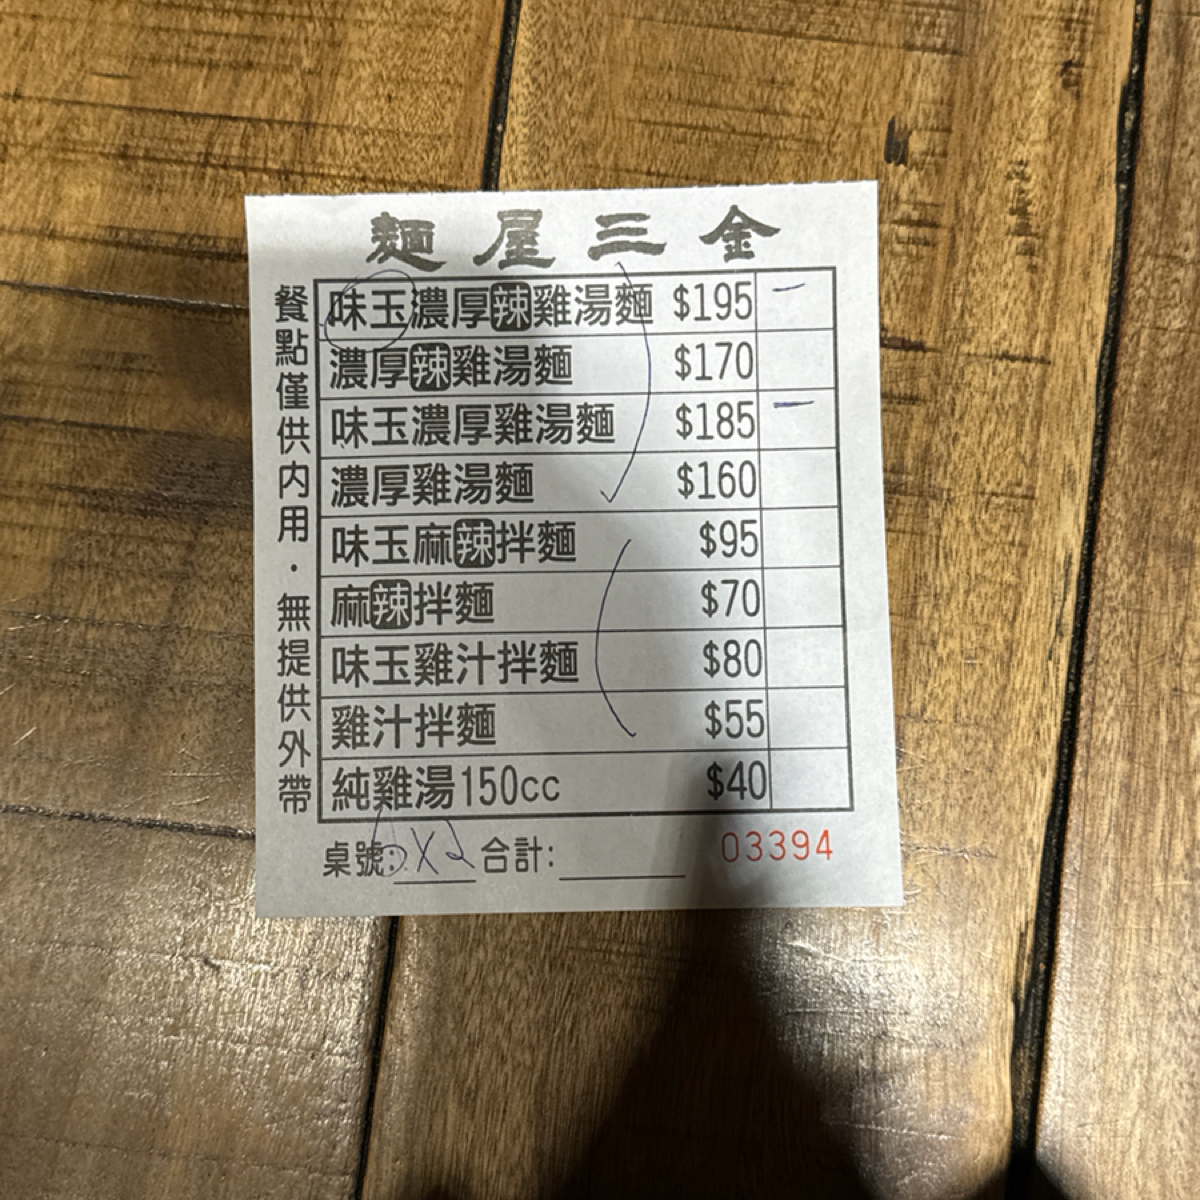 麵屋三金
餐點僅供內用・無提供外帶
味玉濃厚辣雞湯麵 $195 一
濃厚辣雞湯麵 $170
味玉濃厚雞湯麵 $185 一
濃厚雞湯麵 $160
味玉麻辣拌麵 $95
麻辣拌麵 $70
味玉雞汁拌麵 $80
雞汁拌麵 $55
純雞湯150cc $40
桌號: X2 合計: 03394